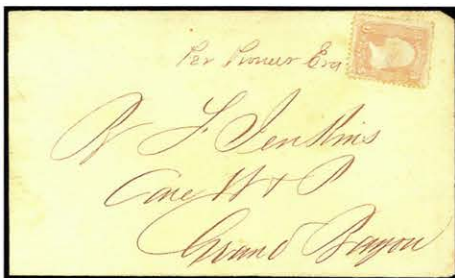 Per Pioneer Era
R F Jenkins
Care W & P
Grand Bayou